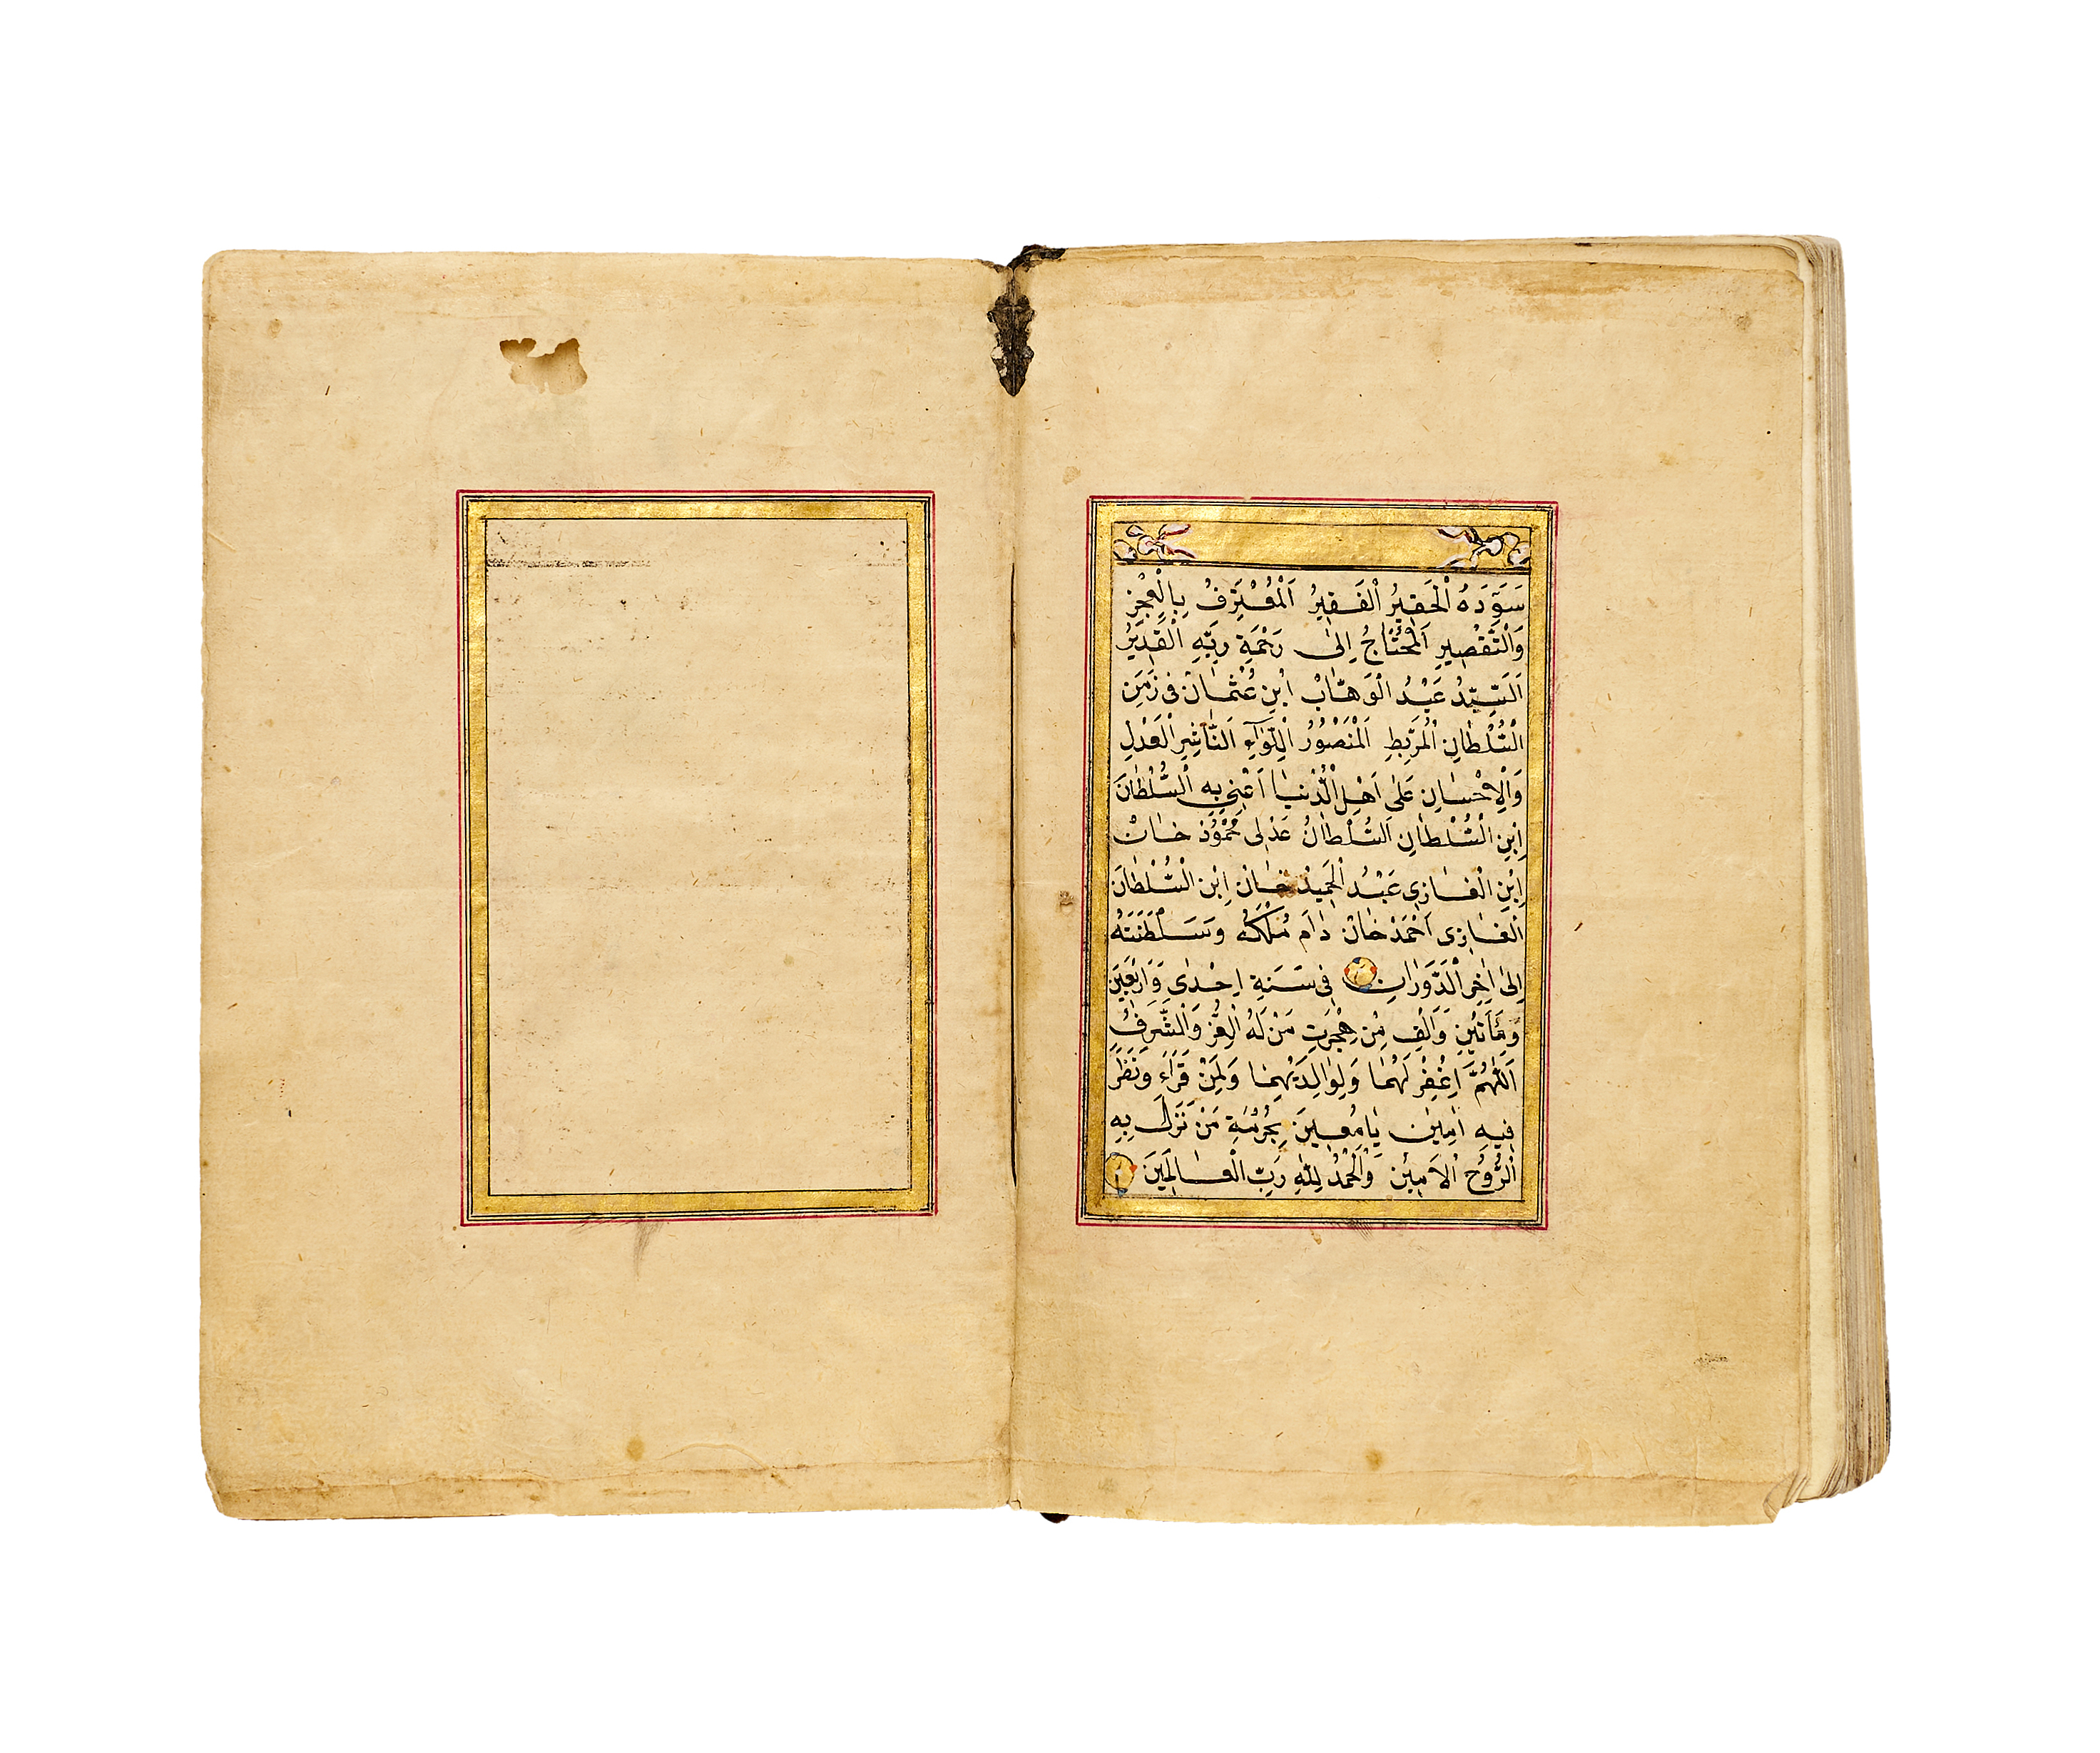 سَوَّدَهُ الْحَقِيرُ الْفَقِيرُ اَلْمُعْتَرِفُ بِالْعَجْزِ
وَالتَّقْصِيرِ اَلْمُحْتَاجُ اِلٰى رَحْمَةِ رَبِّهِ الْقَدِيرُ
اَلسَّيِّدُ عَبْدُ الْوَهَّابْ اِبْنِ عُثْمَانْ فِى زَمَنِ
السُّلْطَانِ الْمُرَبِطِ اَلْمَنْصُورُ الِلّوَآءِ اَلنَّاشِرِ الْعَدْلِ
وَالْاِحْسَانِ عَلٰى اَهْلِ الدُّنْيَا اَعْنِى بِهِ السُّلْطَانَ
اِبْنِ السُّلْطَانِ اَلسُّلْطَانُ عَدْلِى مَحْمُودْ خَانْ
اِبْنِ الْغَازِى عَبْدُ الْحَمِيدْ خَانِ اِبْنِ السُّلْطَانَ
الْغَازِى اَحْمَدْ خَانْ دَامَ مُلْكُهُ وَسَلْطَنَتَهُ
اِلٰى اٰخِرِ الدَّوَرَانِ فِى سَنَةِ اِحْدٰى وَاَرْبَعِينَ
وَمَأَتَيْنِ وَاَلْفٍ مِنْ هِجْرَتِ مَنْ لَهُ الْعِزُّ وَالشَّرَفُ
اَللّٰهُمَّ اِغْفِرْ لَهُمَا وَلِوَالِدَيْهِمَا وَلِمَنْ قَرَاَءَ وَنَظَرَ
فِيهِ اٰمِينْ يَامُعِينَ بِحُرْمَةِ مَنْ نَزَلَ بِهِ
الرُّوحُ الْاَمِينْ وَالْحَمْدُ لِلّٰهِ رَبِّ الْعَالَمِينَ